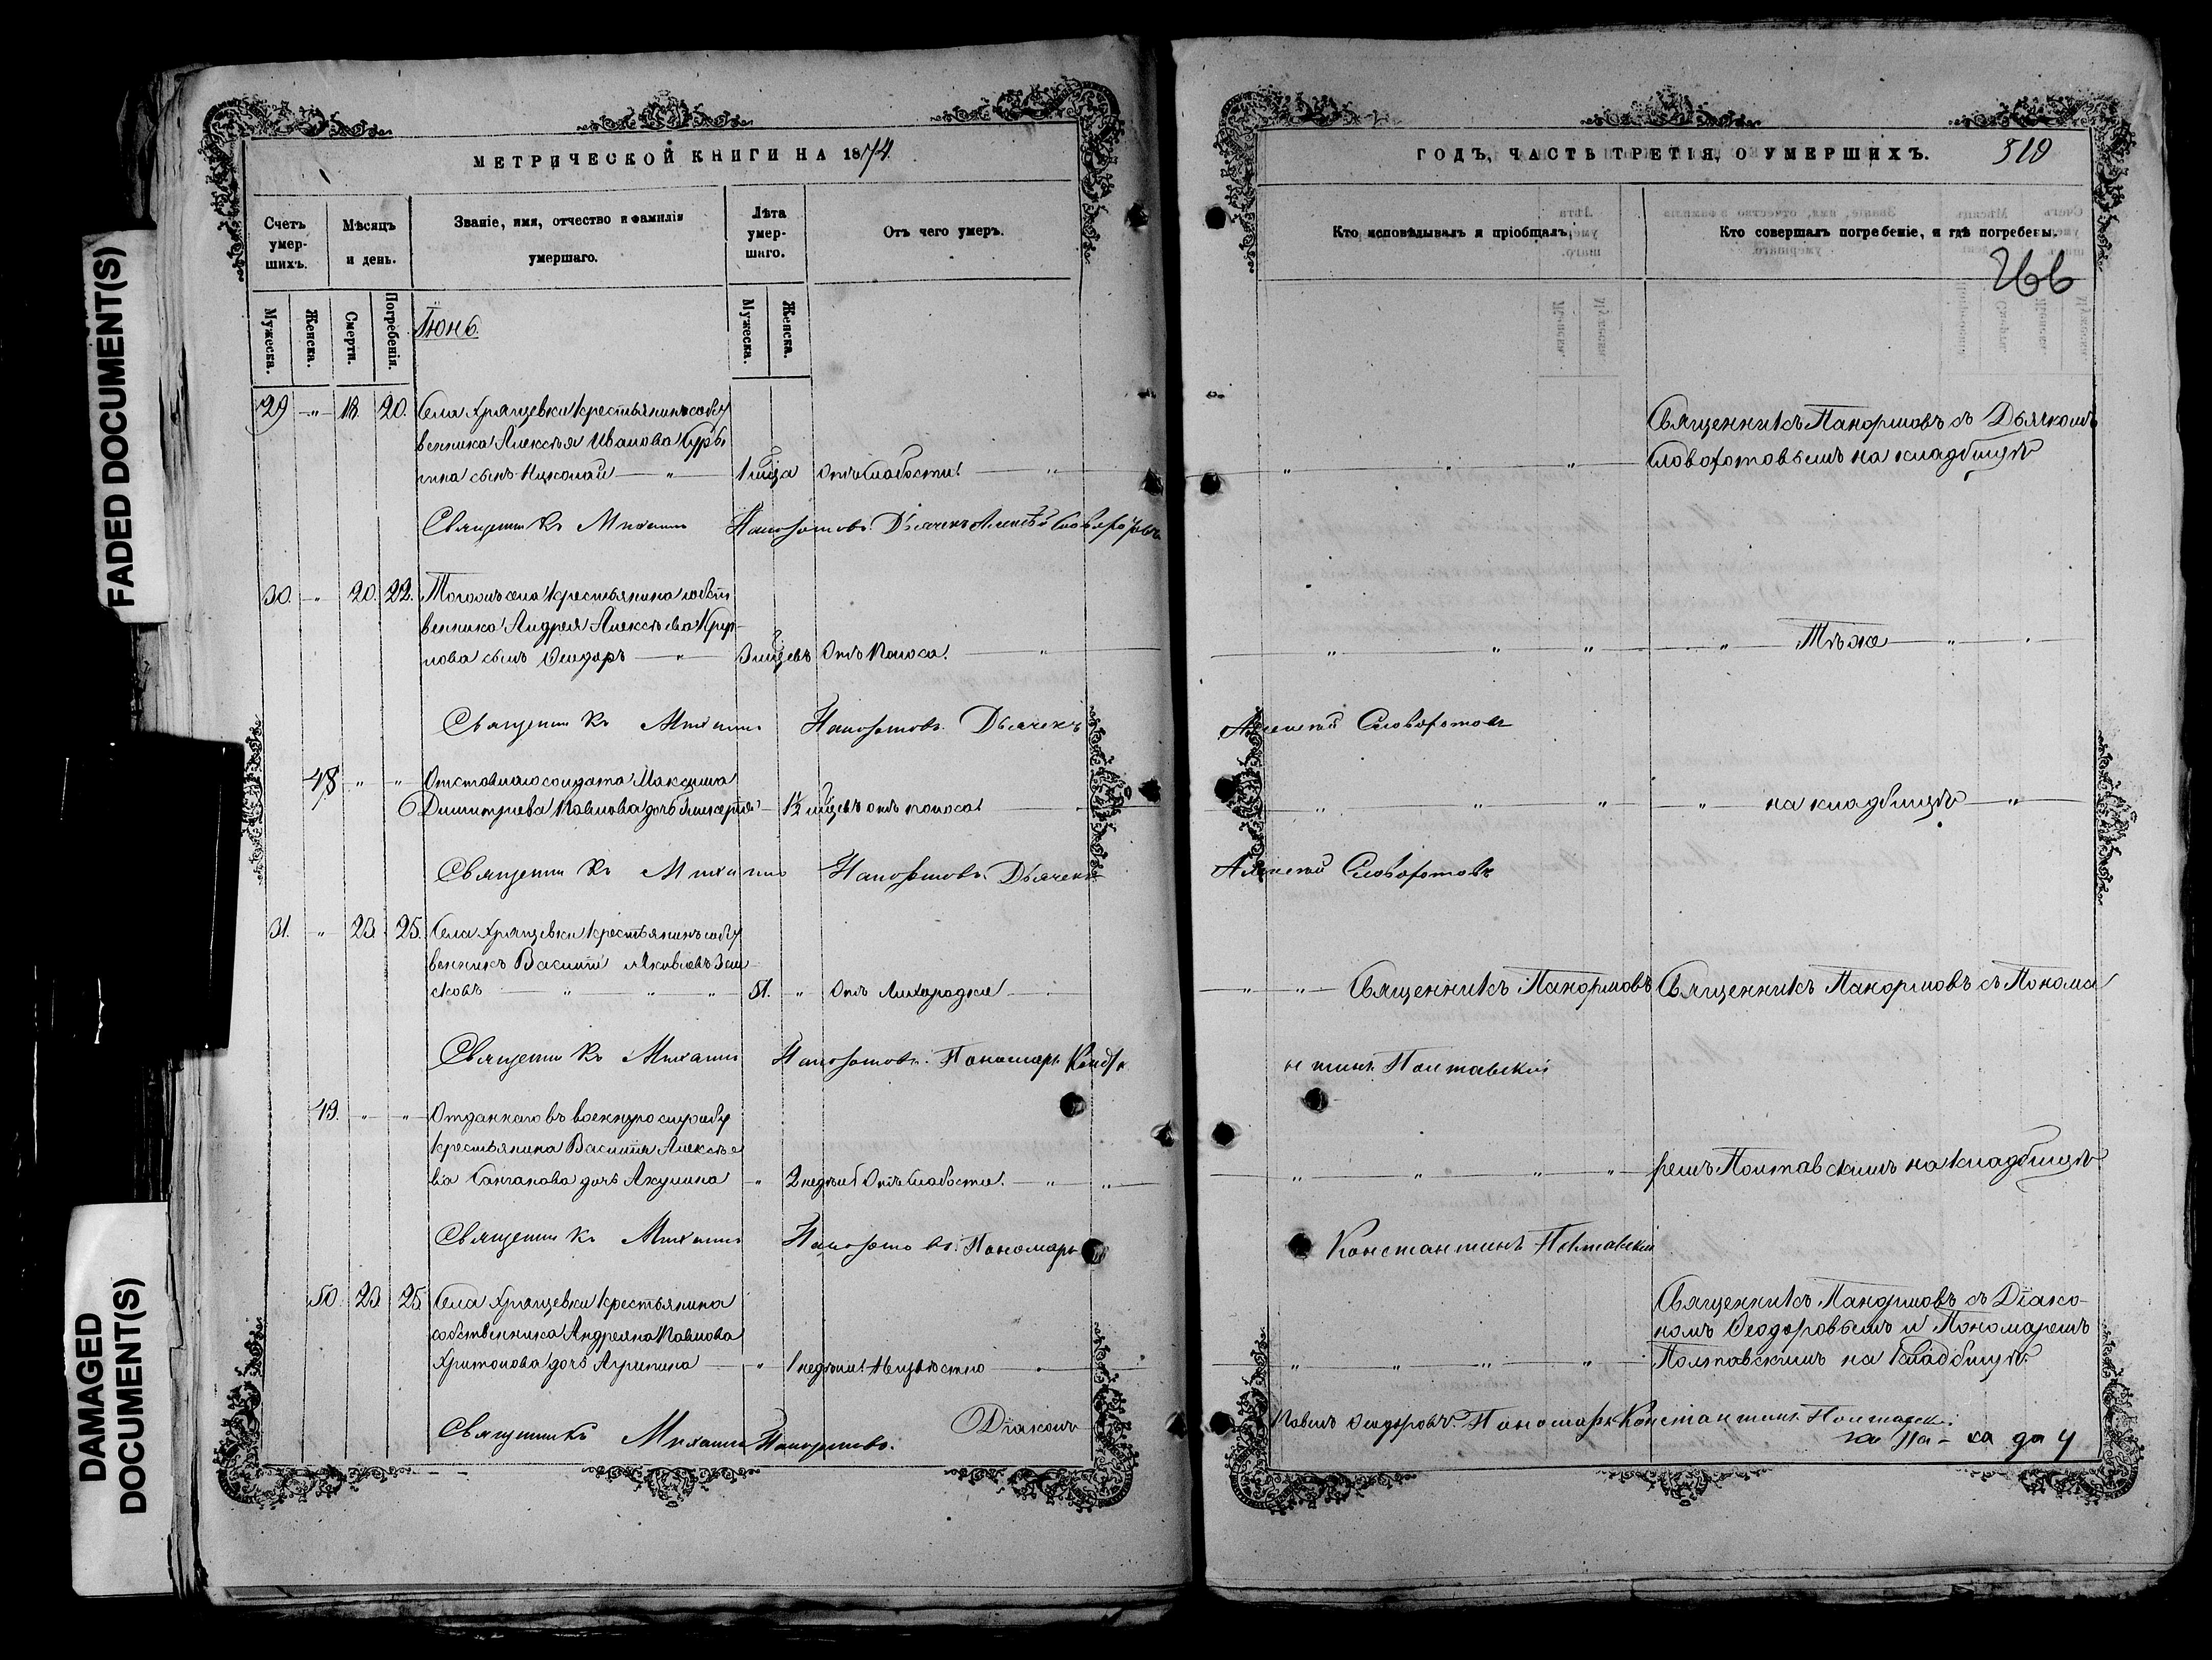 FADED DOCUMENT(S)
DAMAGED
DOCUMENT(S)
МЕТРИЧЕСКОЙ КНИГИ НА 1874
Счетъ
умер-
шихъ.
Мѣсяцъ
и день.
Званіе, имя, отчество и фамилія
умершаго.
Лѣта
умер-
шаго.
Отъ чего умеръ.
Мужеска.
Женска.
Смерти.
Погребенія.
Іюнь.
Мужеска.
Женска.
29 " 18. 20. Села Хрящевки крестьянина собст
венника Алексѣя Иванова
сынъ Николай " 1 мца Отъ слабости "
Священникъ Михаилъ Панормовъ. Дьячекъ Алексѣй Словохотовъ
30. " 20. 22. Тогожъ села крестьянина собст
венника Андрея Алексѣева
сынъ Ѳеодоръ " 3 мцевъ Отъ поноса. "
Священникъ Михаилъ Панормовъ. Дьячекъ
48 " " Отставнаго солдата Максима
Димитріева Павлова дочь 1½ мцевъ отъ поноса
Священникъ Михаилъ Панормовъ. Дьячекъ
31. " 23. 25. Села Хрящевки крестьянинъ собст
венникъ Василій Яковлевъ
" " " 51. " Отъ лихорадки
Священникъ Михаилъ Панормовъ. Пономарь
49. " " Отданнаго въ военную службу
крестьянина Василія Алексѣе
ва дочь Акулина " 2 недѣли Отъ слабости. " "
Священникъ Михаилъ Панормовъ. Пономарь
50. 23 25 Села Хрящевки крестьянина
собственника Андреяна Павлова
Харитонова дочь Агрипина " 1 недѣли Неизвѣстно
Священникъ Михаилъ Панормовъ. Діаконъ
ГОДЪ, ЧАСТЬ ТРЕТІЯ, О УМЕРШИХЪ. 519
Кто исповѣдывалъ и пріобщалъ.
Кто совершалъ погребеніе, и гдѣ погребены.
266
Священникъ Панормовъ съ Дьячкомъ
" " " Словохотовымъ на кладбищѣ
" " " " Тѣ же " "
Алексѣй Словохотовъ
" " " " на кладбищѣ "
Алексѣй Словохотовъ
" " Священникъ Панормовъ Священникъ Панормовъ съ Понома
Полтавскій
" " " " ремъ Полтавскимъ на кладбищѣ
Константинъ Полтавскій
Священникъ Панормовъ съ Діако-
номъ Ѳеодоровымъ и Пономаремъ
" " " " Полтавскимъ на кладбищѣ.
Павелъ Ѳеодоровъ. Пономарь Константинъ Полтавскій